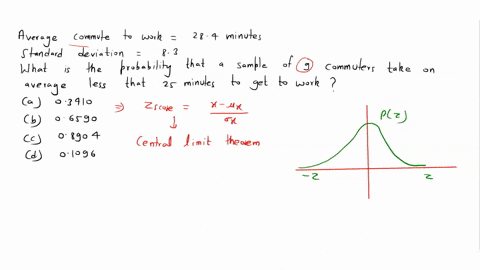 Average commute to work = 28.4 minutes
Standard deviation = 8.3
What is the probability that a sample of 9 commuters take on
average less that 25 minutes to get to work ?
(a) 0.3410 ⇒ Zscore = x - μx / σx
(b) 0.6590
(c) 0.8904 Central limit theorem
(d) 0.1096
P(z)
-z z